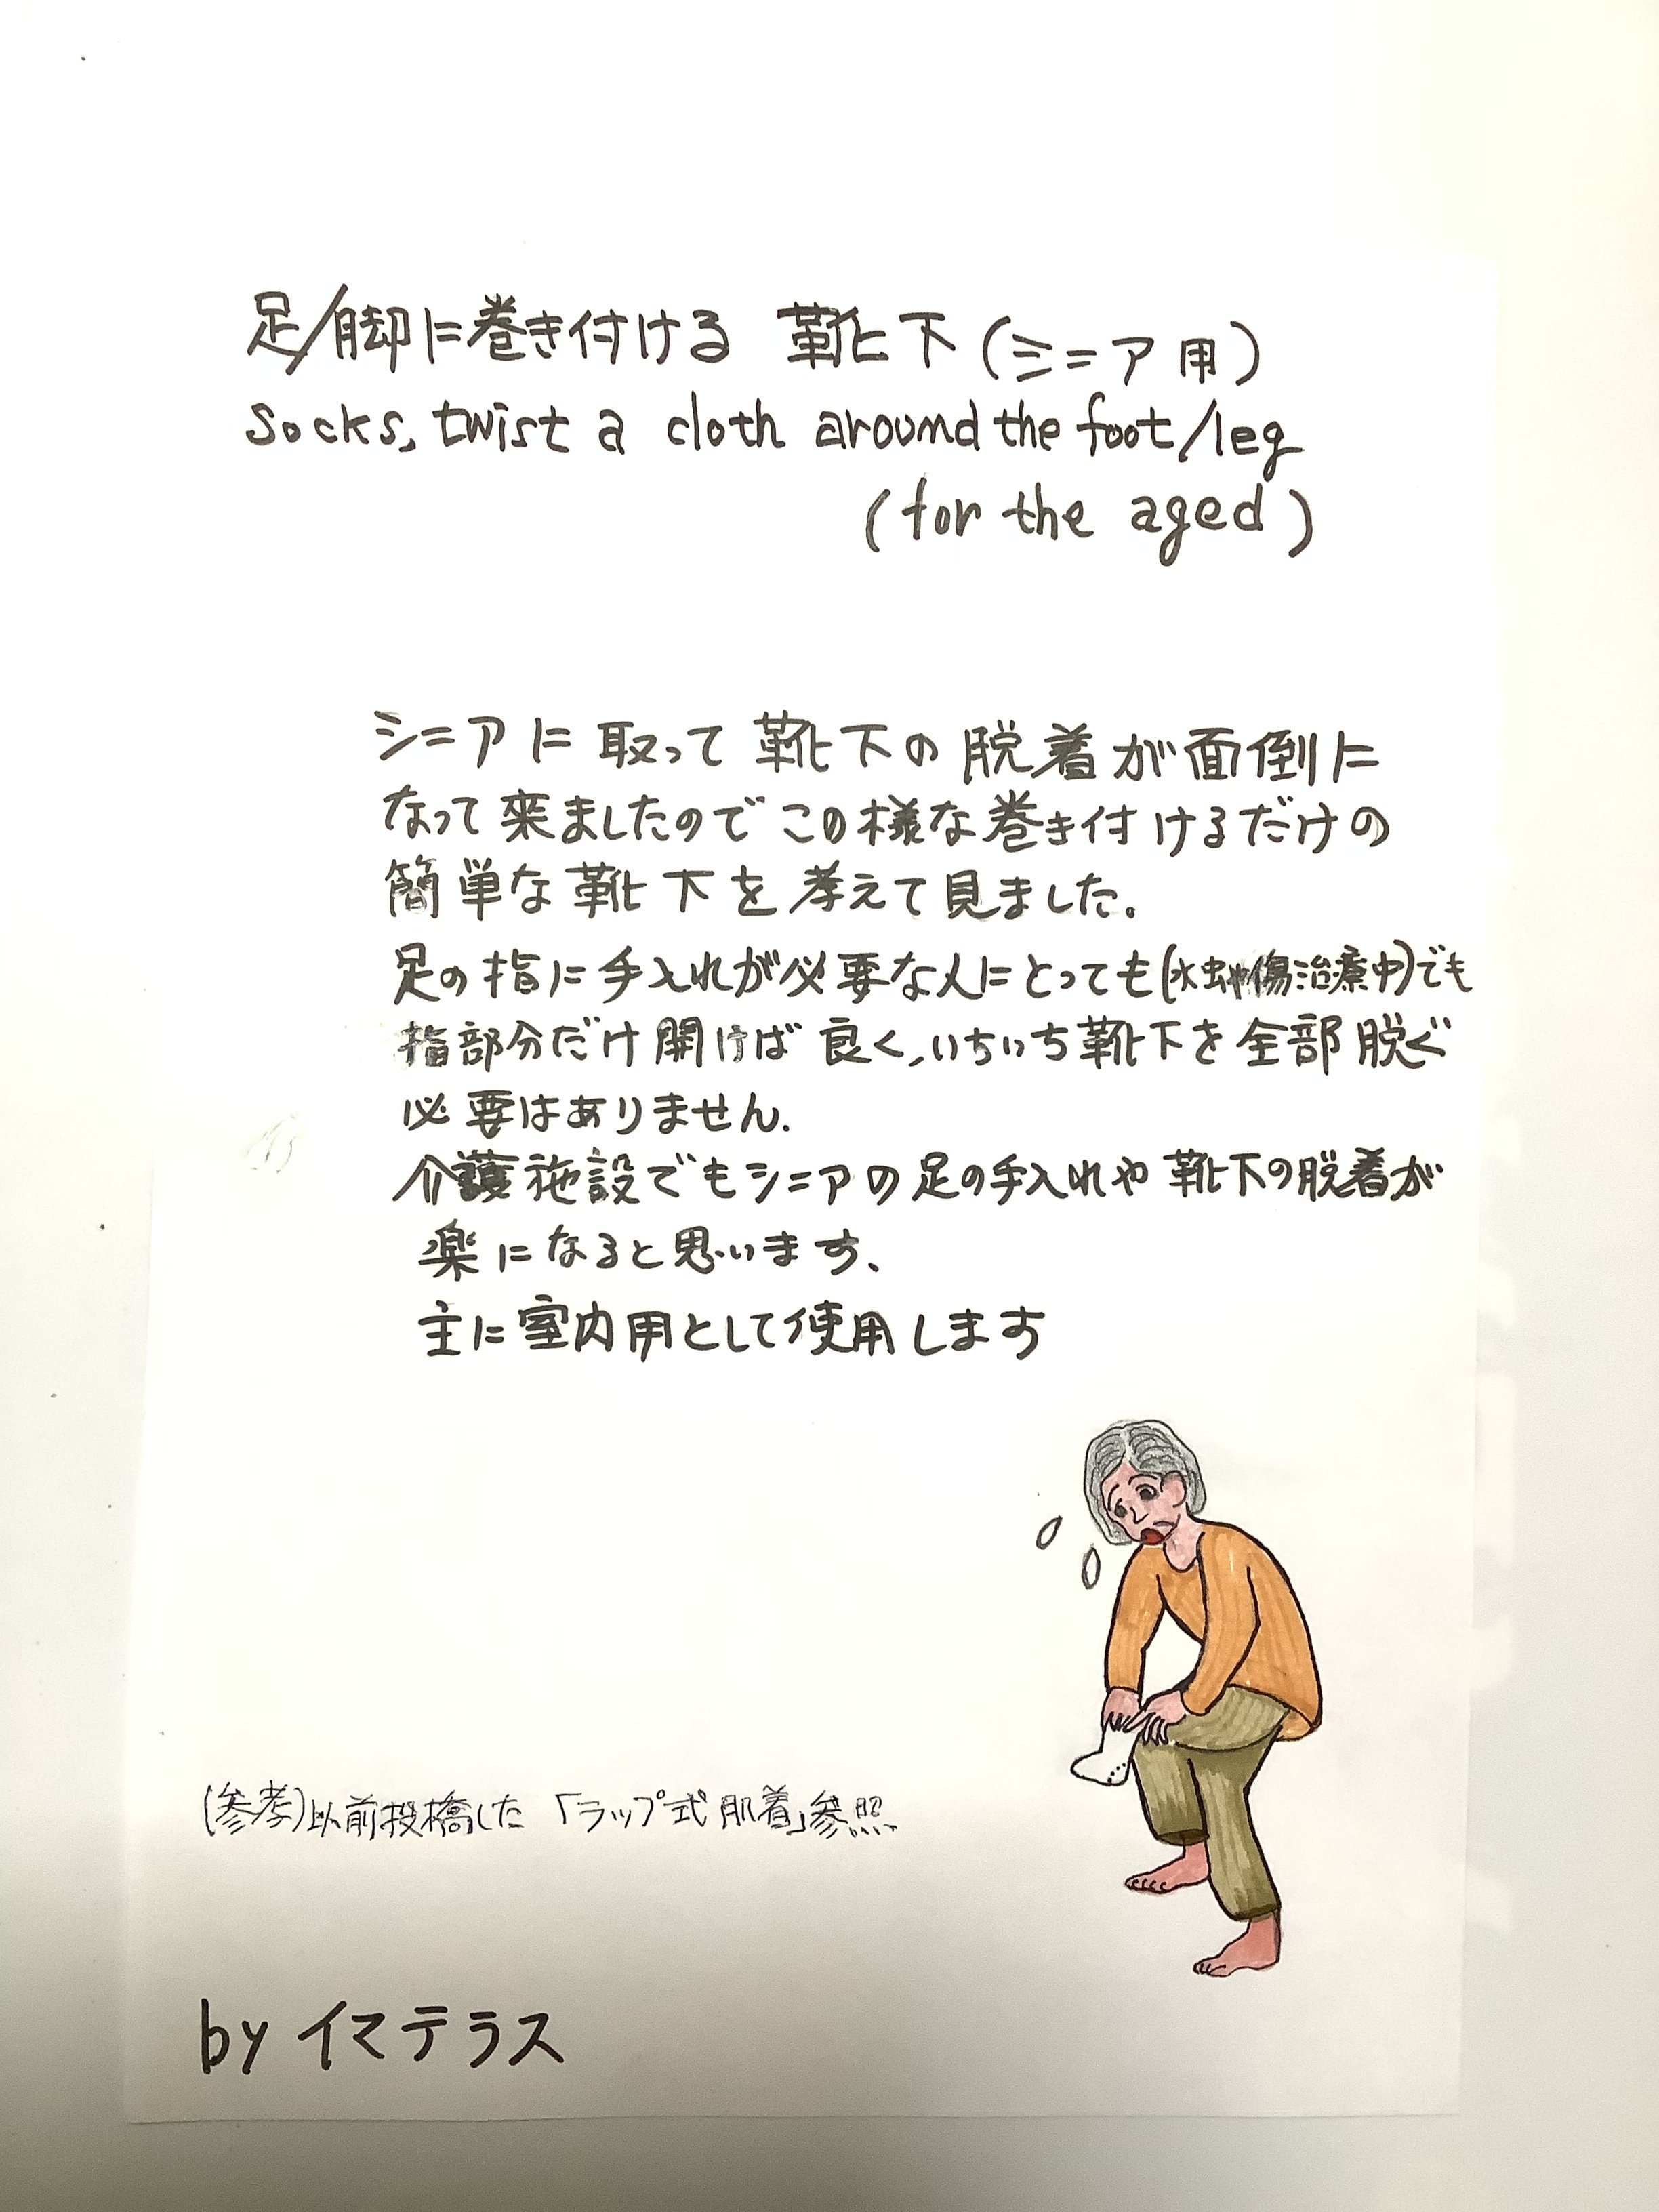 足/脚に巻き付ける 靴下(シニア用)
Socks, twist a cloth around the foot/leg
(for the aged)
シニアに取って靴下の脱着が面倒に
なって来ましたのでこの様な巻き付けるだけの
簡単な靴下を考えて見ました。
足の指に手入れが必要な人にとっても(水虫や傷治療中)でも
指部分だけ開けば良く、いちいち靴下を全部脱ぐ
必要はありません.
介護施設でもシニアの足の手入れや靴下の脱着が
楽になると思います、
主に室内用として使用します
(参考)以前投稿した「ラップ式肌着」参照
by イマテラス